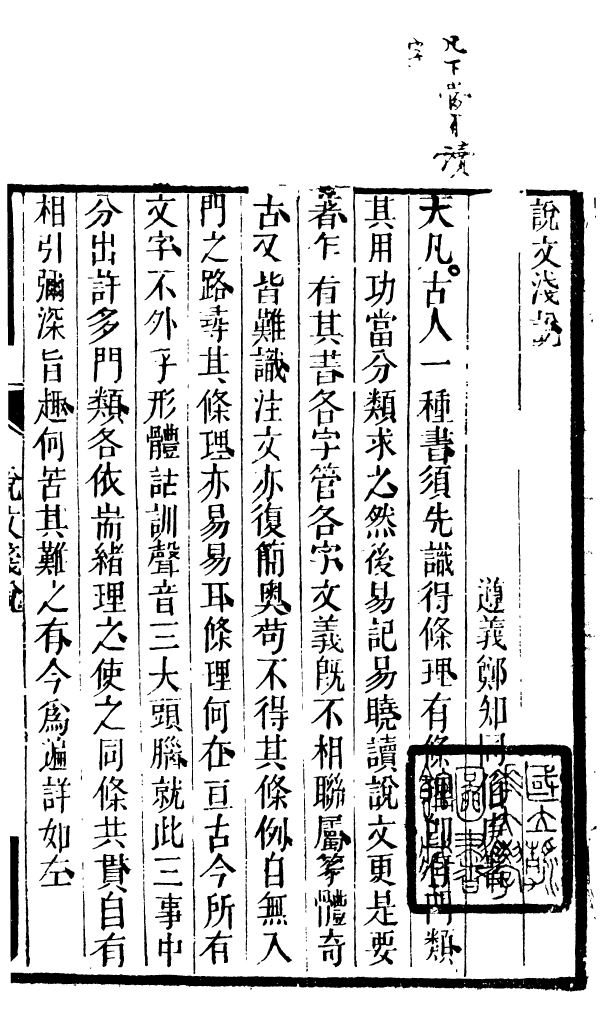 凡下當有讀
字
說文淺說
遵義鄭知同
大凡。古人一種書須先識得條理有條理即有門類
其用功當分類求之然後易記易曉讀說文更是要
著乍有其書各字管各字文義既不相聯屬篆體奇
古又皆難識注文亦復簡奧苟不得其條例自無入
門之路尋其條理亦易易耳條理何在亘古今所有
文字不外乎形體詁訓聲音三大頭腦就此三事中
分出許多門類各依耑緒理之使之同條共貫自有
相引彌深旨趣何苦其難之有今爲遍詳如左
說文淺說